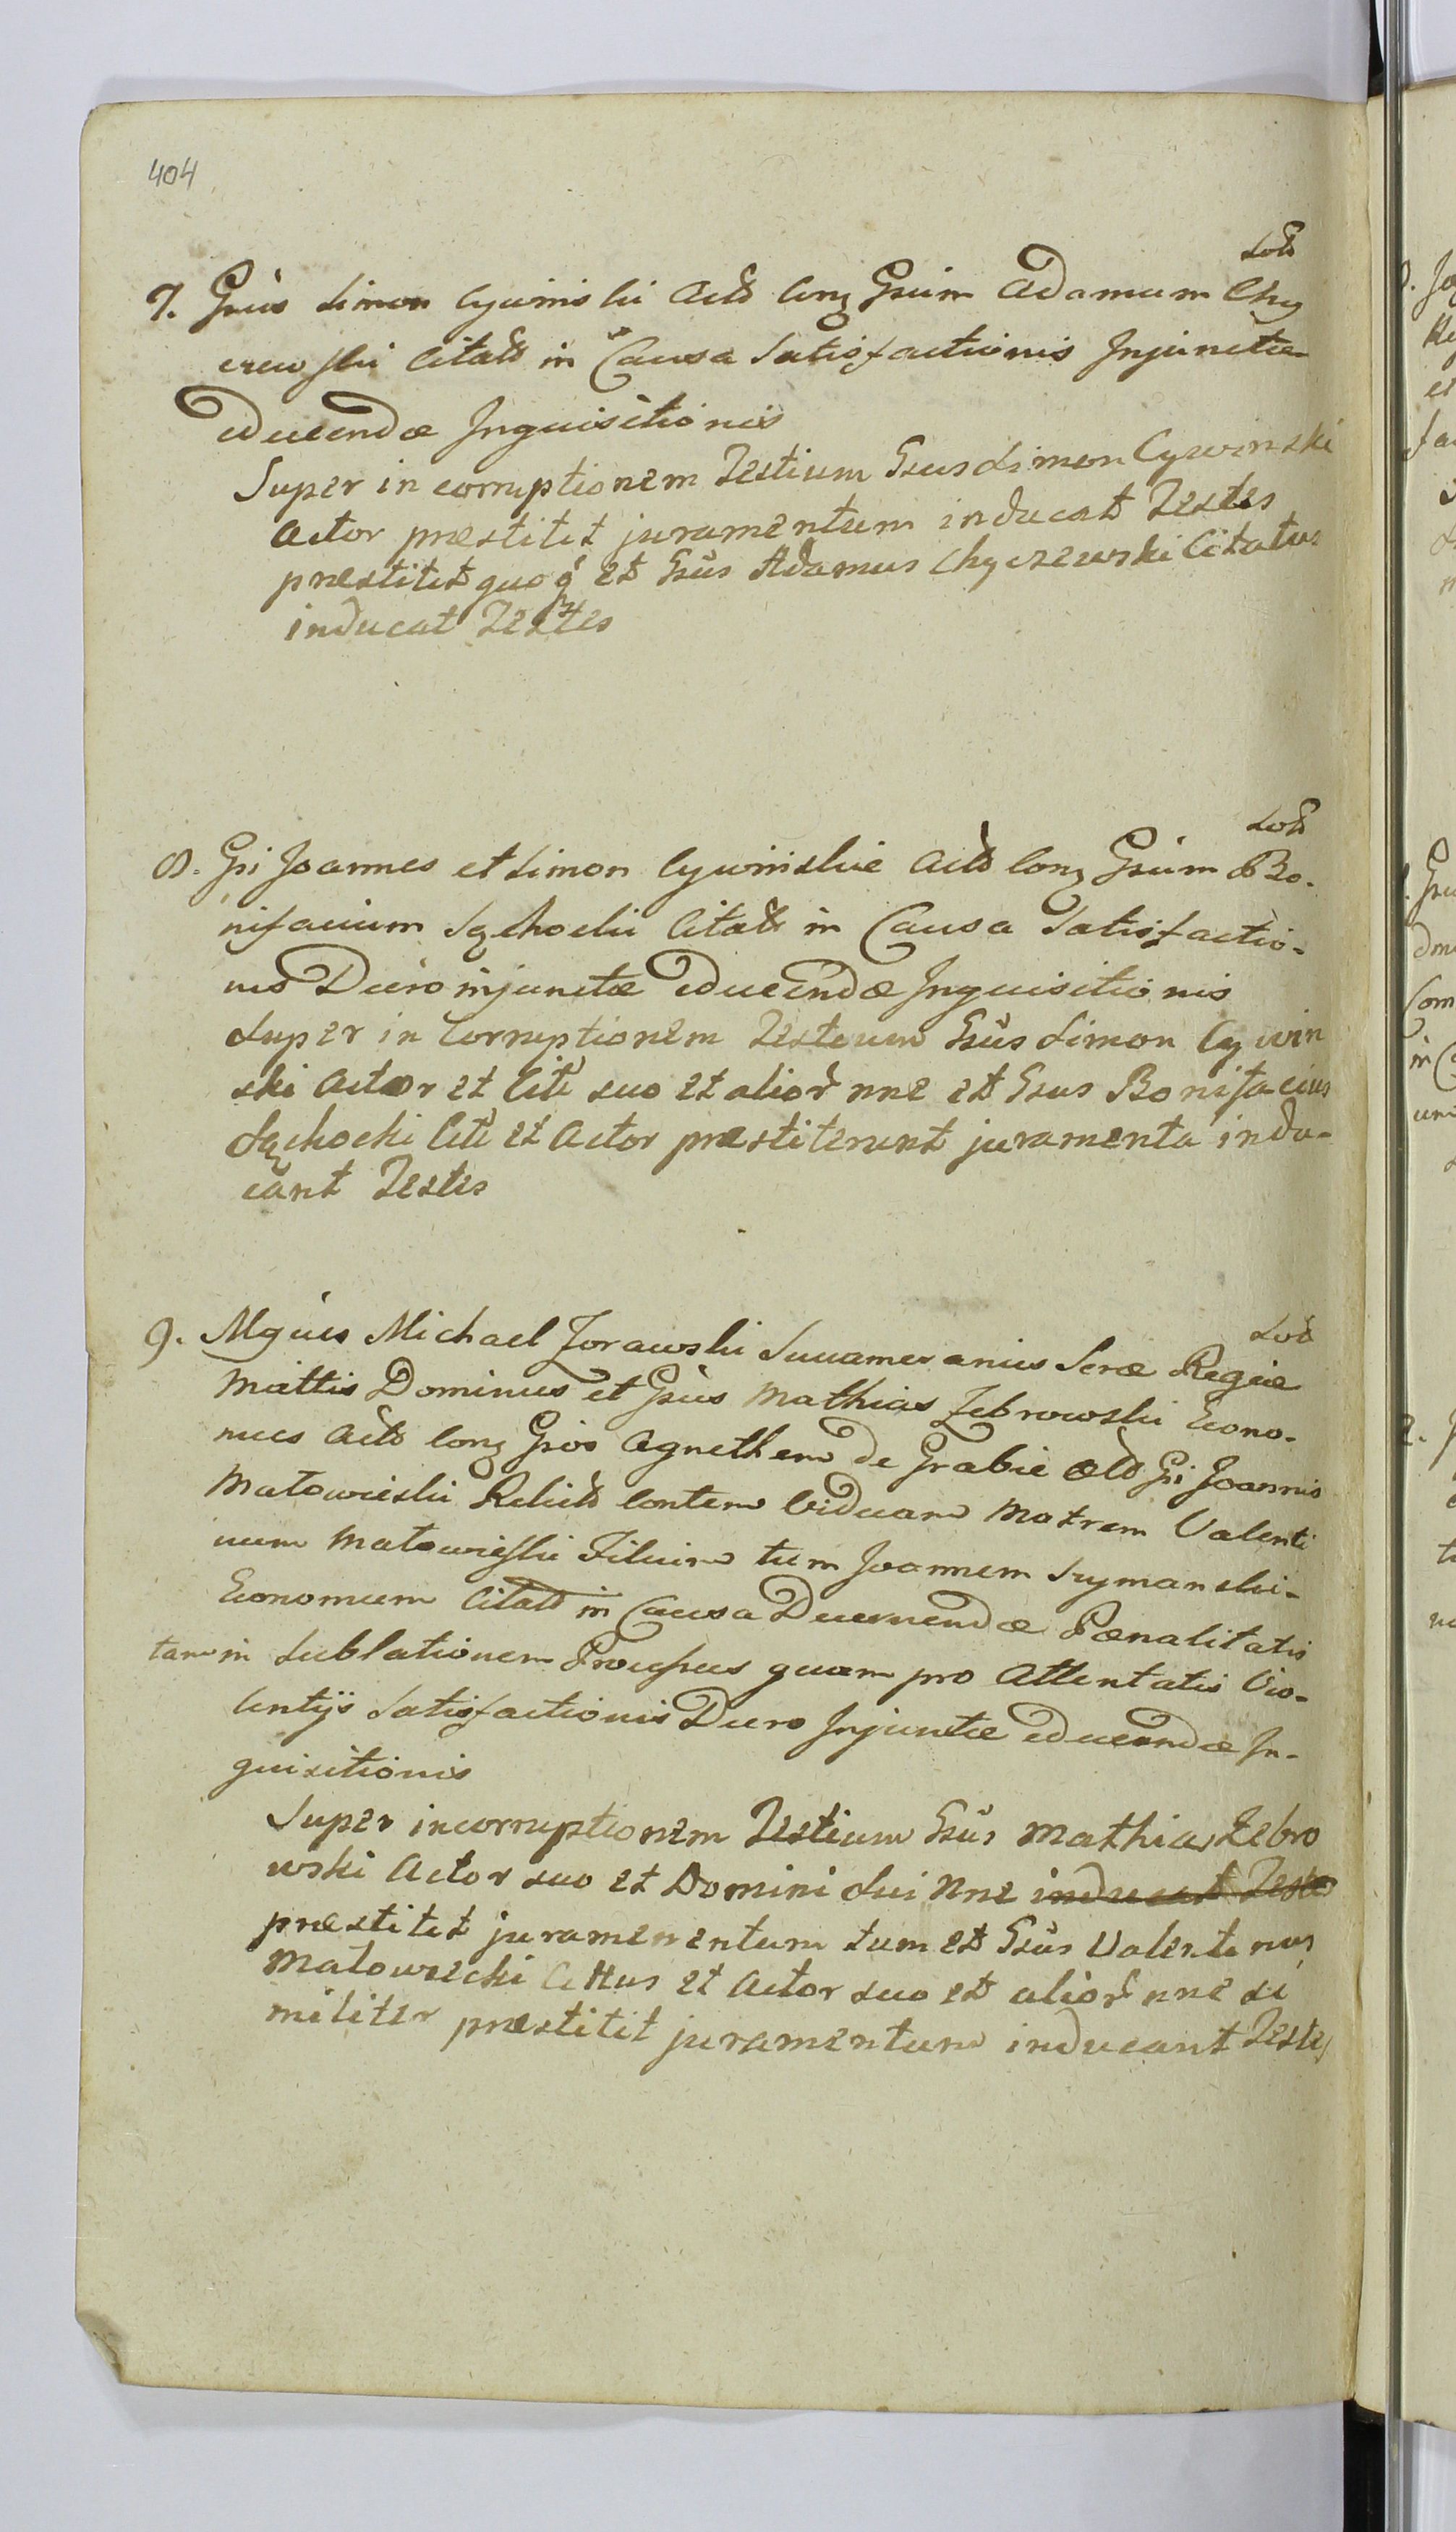 404
Sols
7. Gnus Simon Cywinski Actt Conz Gnum Adamum Chy
czewski Citatt in Causa Satisfactionis Injunctæ
educendæ Inquisitionis
Super in corruptionem Testium Gnus Simon Cywinski
Actor præstitit juramentum inducat Testes
præstitit quoq et Gnus Adamus Chyczewski Citatus
inducat Testes
8. Gni Joannes et Simon Cywinskie Actt Conz Gnum Bo-
nifacium Sąchocki Citatt in Causa Satisfactio-
nis Decro injunctæ educendæ Inquisitionis
Super in Corruptionem Testium Gnus Simon Cywin
ski Actor et Citt suo et alior nne et Gnus Bonifacius
Sąchocki Citt et Actor præstiterunt juramenta indu-
cant Testes
9. Mgcus Michael Zorawski Succamerarius Scræ Regiæ
Mattis Dominus et Gnus Mathias Zebrowski Econo-
mus Actt Conz Gnos Agnethem de Grabie olt Gni Joannis
Matowieski Relictt Contem Viduam Matrem Valenti
num Matowieski Filium tum Joannem Szymanski
Economum Citatt in Causa Decernendæ Pœnalitatis
tam in Sublationem Processus quam pro Attentatis Vio-
lentijs Satisfactionis Decro Injunctæ educendæ In-
quisitionis
Super incorruptionem Testium Gnus Mathias Zebro
wski Actor suo et Domini Sui nne inducat Testes
præstitit juramenentum tum et Gnus Valentinus
Matowiecki Cittus et Actor suo et alior nne si
militer præstitit juramentum inducant Testes